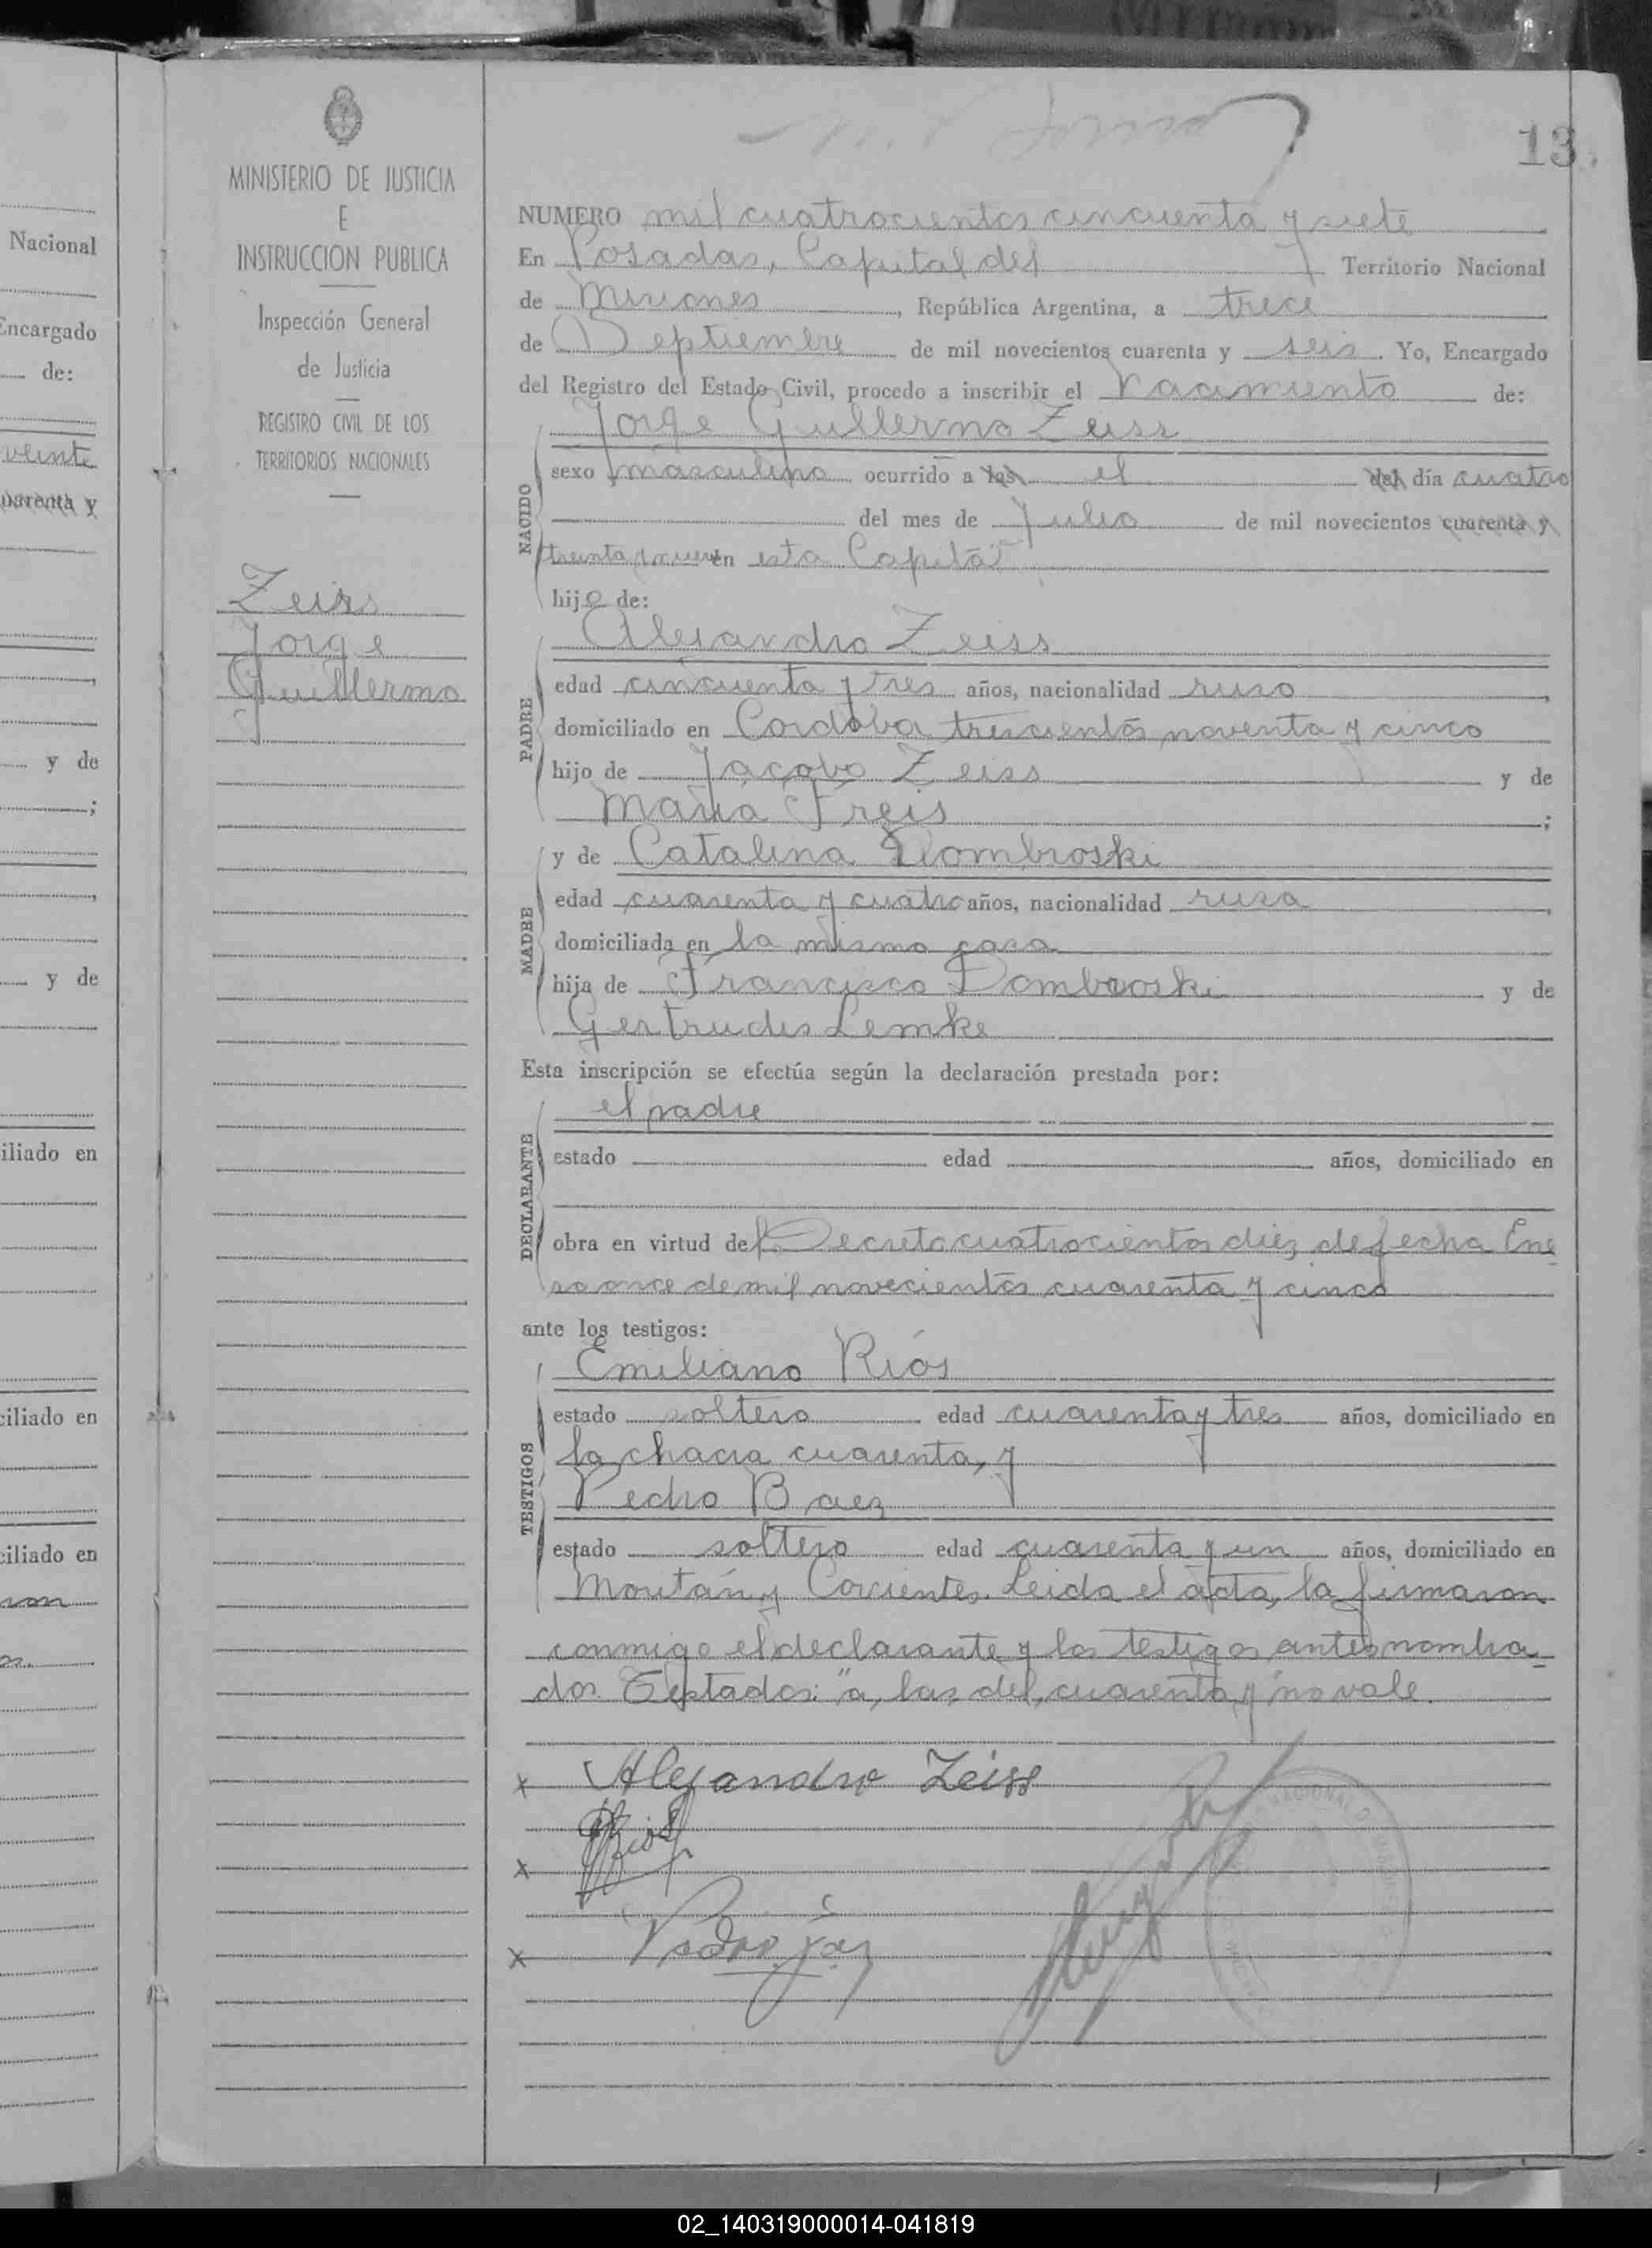 13.
MINISTERIO DE JUSTICIA
E
INSTRUCCION PUBLICA
Inspección General
de Justicia
REGISTRO CIVIL DE LOS
TERRITORIOS NACIONALES
Zeiss
Jorge
Guillermo
NUMERO mil cuatrocientos cincuenta y siete
En Posadas, Capital del Territorio Nacional
de Misiones, República Argentina, a trece
de Septiembre de mil novecientos cuarenta y seis. Yo, Encargado
del Registro del Estado Civil, procedo a inscribir el nacimiento de:
Jorge Guillermo Zeiss
NACIDO
sexo masculino ocurrido a las el del día cuatro
del mes de Julio de mil novecientos cuarenta y
treinta y nueve en esta Capital
hijo de:
Alejandro Zeiss
PADRE
edad cincuenta y tres años, nacionalidad ruso,
domiciliado en Cordoba trescientos noventa y cinco
hijo de Jacobo Zeiss y de
Maria Freis;
y de Catalina Dombroski
MADRE
edad cuarenta y cuatro años, nacionalidad rusa,
domiciliada en la misma casa
hija de Francisco Dombroski y de
Gertrudis Lemke
Esta inscripción se efectúa según la declaración prestada por:
el padre
DECLARANTE
estado edad años, domiciliado en
obra en virtud del Decreto cuatrocientos diez de fecha Ene
ro once de mil novecientos cuarenta y cinco
ante los testigos:
Emiliano Ríos
TESTIGOS
estado soltero edad cuarenta y tres años, domiciliado en
la chacra cuarenta, y
Pedro Baez
estado soltero edad cuarenta y un años, domiciliado en
Moritán y Corrientes. Leida el acta, la firmaron
conmigo el declarante y los testigos antes nombra-
dos. Testados: "a, las, del, cuarenta y no vale.
x Alejandro Zeiss
x Rios
x
Nacional
Encargado
de:
veinte
cuarenta y
y de
;
y de
iliado en
ciliado en
ciliado en
ron
02_140319000014-041819